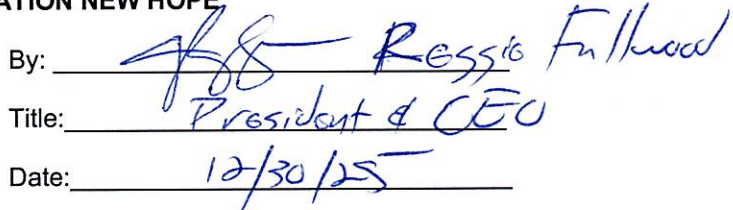 ATION NEW HOPE
By: Reggie Fullwood
Title: President & CEO
Date: 12/30/25